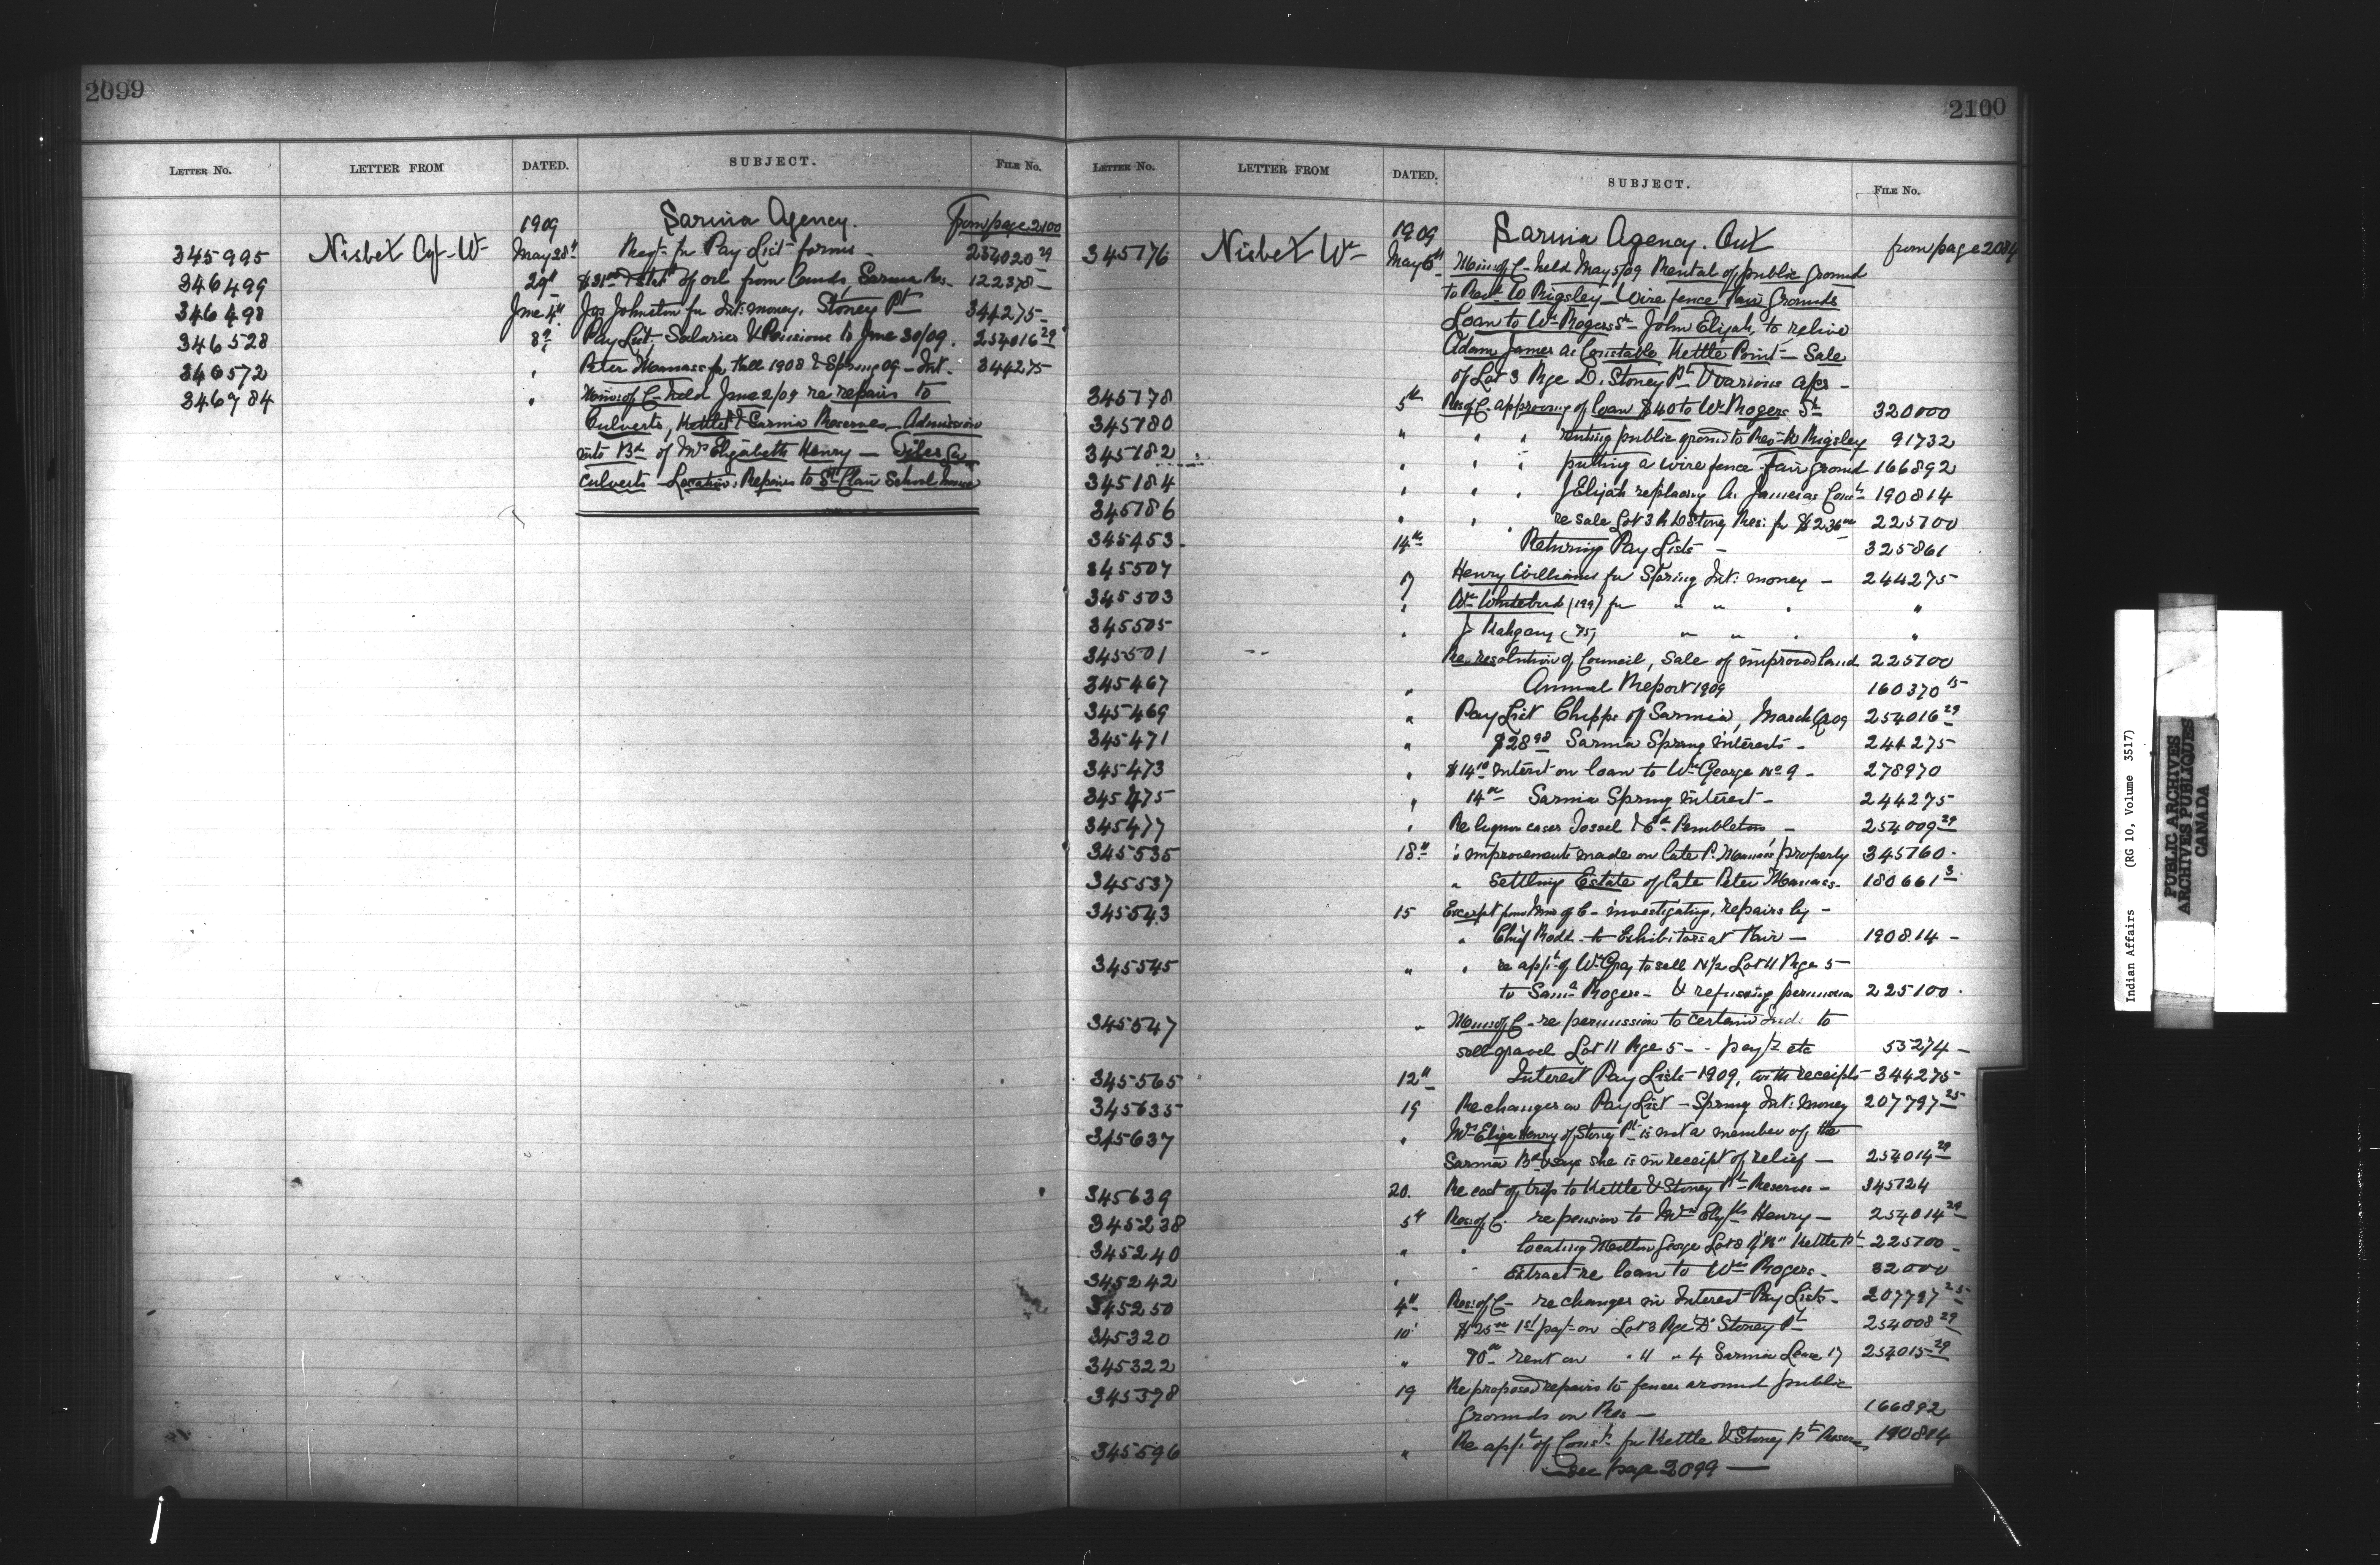 2099
LETTER NO. LETTER FROM DATED. SUBJECT. FILE No.
1909 Sarnia Agency. from page 2100
345995 Nisbet Agt W- May 28" Reqt. for Pay List forms - 254020 29
346499 29" of oil from lands, Sarnia Res. 122378 -
346498 June 4" Jos Johnston for Int: money, Stoney Pt 344275 -
346528 8" Pay List, Salaries & Pensions to June 30/09. 254016 29
346572 " Peter Manass for Fall 1908 & Spring 09 - Int. 344275
346784 " Mins of C- held June 2/09 re repairs to
Culverts, Kettle Pt & Sarnia Reserves - Admission
into Bd of Mrs Elizabeth Henry - Tiles for
Culverts - Location: Repairs to St Clair School house
2100
LETTER NO. LETTER FROM DATED. SUBJECT. FILE No.
1909 Sarnia Agency. Ont from page 2084
345176 Nisbet Wm May 6th Mins of C- held May 5/09 Rental of public ground
to Revd Wrigsley - Wire fence Fair Grounds
Loan to Wm Rogers Sr - John Elijah, to relieve
Adam James as Constable Kettle Point - Sale
of Lot 3 Rge D. Stoney Pt & various apps -
345178 5th Res of C. approving of loan $40 to Wm Rogers Sr 320000
345180 " " " renting public ground to Rev 91732
345182 " " " putting a wire fence fair ground 166892
345184 " " " J Elijah replacing A. James as Const 190814
345186 " " " re sale Lot 3 R D Stoney Res: for $236 00 225100
345453 - 14th Returning Pay Lists - 325861
345507 17 Henry Williams for Spring Int: money - 244275
345503 " Wm Whitebird (199) for " " " "
345505 " J Kahgany (75) " " " "
345501 Re resolution of Council, Sale of improved land 225100
345467 " Annual Report 1909 160370 15
345469 " Pay List Chipps of Sarnia, March Qr 09 254016 29
345471 " $28 98 Sarnia Spring interests - 244275
345473 " $14 10 interest on loan to Wm George No 9 - 278970
345475 " 14 00 Sarnia Spring interest - 244275
345477 " Re liquor cases Jossel & Ed Pembleton - 254009 29
345535 18" " improvements made on late P. Manass' property 345160 -
345537 " Settling Estate of late Peter Manass - 180661 3
345543 15 Excerpt from Mins of C- investigating, repairs by -
" Chief Rodd - to Exhibitors at Fair - 190814 -
345545 " " re appt of Wm Gray to sell N/2 Lot 11 Rge 5
to Saml Rogers - & refusing permission 225100 -
345547 " Mins of C - re permission to certain Ind: to
sell gravel Lot 11 Rge 5 - - payt etc 53274 -
345565 12" Interest Pay Lists 1909, with receipts 344275
345635 19 Re changes on Pay List - Spring Int: money 207797 25
345637 " Mrs Eliza Henry of Stoney Pt is not a member of the
Sarnia Bd & says she is in receipt of relief - 254014 29
345639 20. Re cost of trip to Kettle & Stoney Pt Reserves - 345124
345238 5th Res of C. re pension to Mrs Elizth Henry - 254014 29
345240 " " locating Milton George Lot 8 R "B" Kettle Pt 225100 -
345242 " " Extract re loan to Wm Rogers - 32000
345250 4" Res: of C - re changes in Interest Pay Lists - 207797 25
345320 10' $25 00 1st payt on Lot 3 Rge D' Stoney Pt 254008 29
345322 " 70 00 rent on " 11 " 4 Sarnia Lease 17 254015 29
345398 19 Re proposed repairs to fences around public
grounds on Res - 166892
345596 " Re appt of Const for Kettle & Stoney Pt Reserves 190814
See page 2099
Indian Affairs (RG 10, Volume 3517)
PUBLIC ARCHIVES
ARCHIVES PUBLIQUES
CANADA